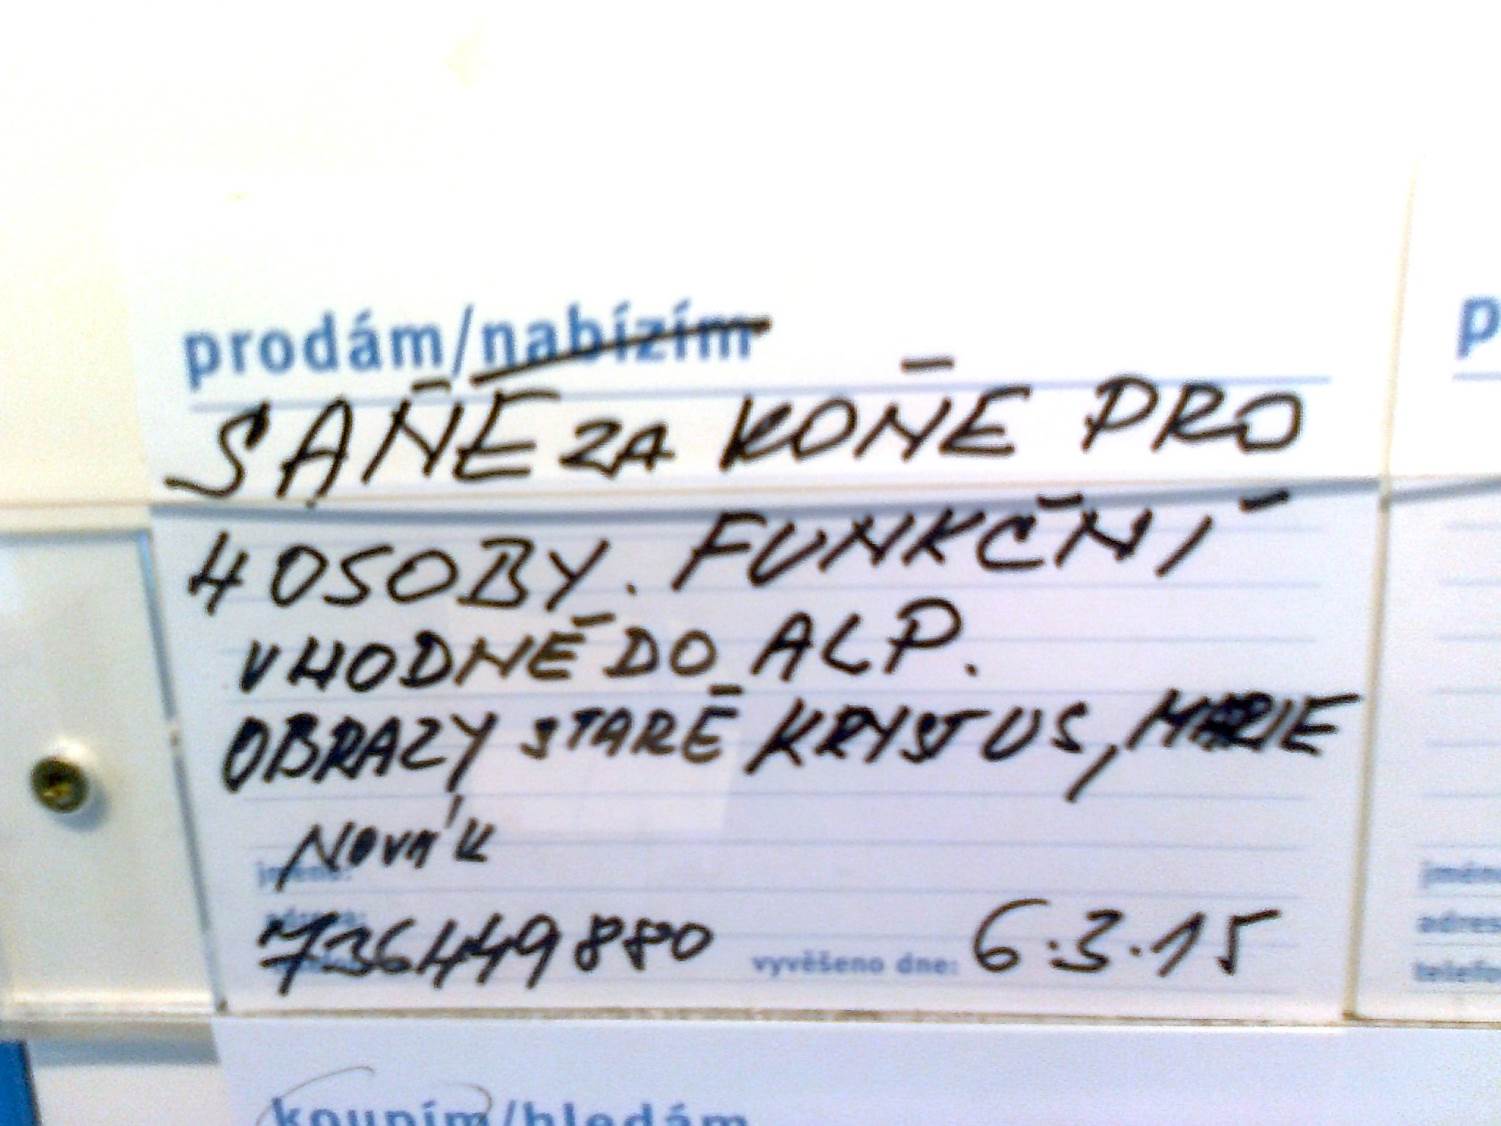 prodám/nabízím
p
SAŇE ZA KOŇE PRO
4 OSOBY. FUNKČNÍ
VHODNÉ DO ALP.
OBRAZY STARÉ KRYSTUS, MARIE
jméno:
Novák
adresa:
736449880
vyvěšeno dne: 6.3.15
jméno
adres
telefo
koupím/hledám